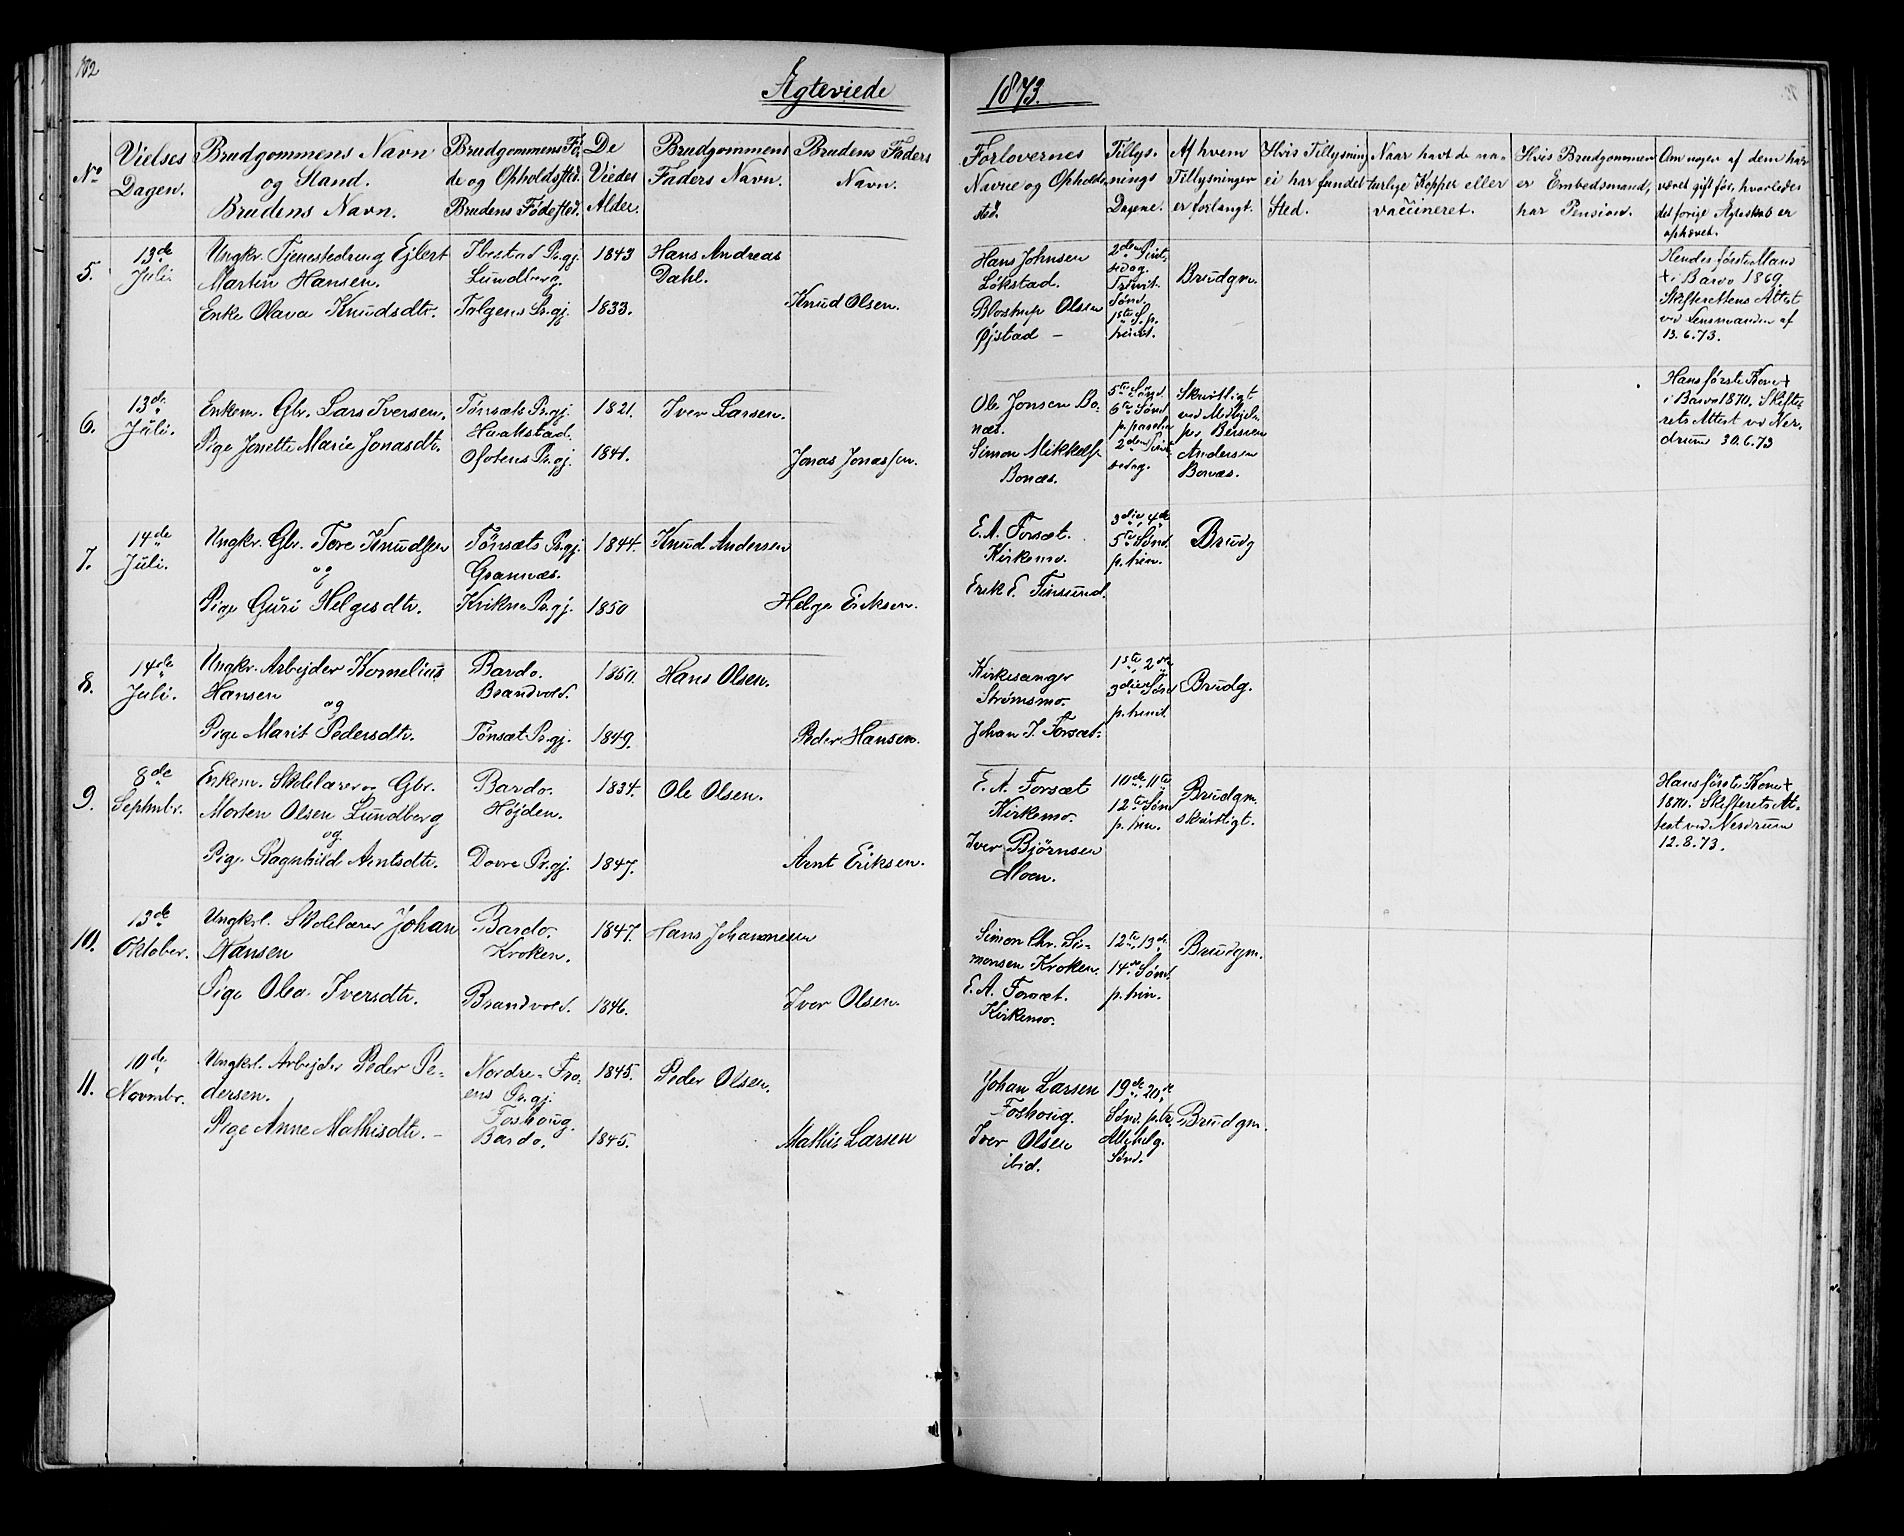 182
Ægteviede
1873.
No
Vielses
Dagen.
Brudgommens Navn
og Stand.
Brudens Navn.
Brudgommens Fø-
de og Opholdssted.
Brudens Fødested.
De
Viedes
Alder.
Brudgommens
Faders Navn.
Brudens Faders
Navn.
Forlovernes
Navne og Opholds-
sted.
Tillys-
nings
Dagene.
Af hvem
Tillysningen
er forlangt.
Hvis Tillysning
ei har fundet
Sted.
Naar havt de na-
turlige Kopper eller
vaccineret.
Hvis Brudgommen
er Embedsmand,
har Pension.
Om nogen af dem har
været gift før, hvorledes
det forige Ægteskab er
ophævet.
5.
13de
Juli.
Ungkr. Tjenestedreng Ejlert
Martin Hansen.
Enke Olava Knudsdtr.
Ibestad Pr.gj.
Lundberg.
Tolgens Pr.gj.
1843
1833.
Hans Andreas
Dahl.
Knud Olsen.
Hans Johnsen
Løkstad.
Olsen
Øjstad –
2den Pint-
sedag.
Trinit.
Sønd.
1ste S. p.
trinit.
Brudgm.
Hendes første Mand
+ i Bardo 1869.
Skifterettens Attest
ved Lensmanden af
13.6.73.
6.
13de
Juli.
Enkem. Gbr. Lars Iversen.
Pige Jonette Marie Jonasdtr.
Tønsæts Pr.gj.
Haakstad.
Ofotens Pr.gj.
1821.
1841.
Iver Larsen.
Jonas Jonassen.
Ole Jonsen Bo-
næs.
Simon Mikkels.
Bonæs.
5te Sønd.
6te Sønd
p. paaske
2den Pint-
sedag.
Skriftligt
ved
Andersen
Bonæs.
Hans første Kone +
i Bardo 1870. Skifte-
rets Attest ved Ner-
drum 30.6.73
7.
14de
Juli.
Ungkr. Gbr. Tore Knudsen
og
Pige Guri Helgesdtr.
Tønsæts Pr.gj.
Grannæs.
Kvikne Pr.gj.
1844.
1850
Knud Andersen
Helge Eriksen.
E. A. Forsæt.
Kirkemo.
Erik E. Finsund.
3die, 4de
5te Sønd.
p. trin.
Brudg
8.
14de
Juli.
Ungkr. Arbejder Kornelius
Hansen
og
Pige Marit Pedersdtr.
Bardo.
Brandvold.
Tønsæt Pr.gj.
1850.
1849.
Hans Olsen.
Peder Hansen.
Kirkesanger
Strømsmo.
Johan I. Forsæt.
1ste 2den
3die Sønd
p. trinit.
Brudg.
9.
8de
Septmbr.
Enkem. Skolelærer og Gbr.
Morten Olsen Lundberg
og
Pige Ragnhild Arntsdtr.
Bardo.
Højden.
Dovre Pr.gj.
1834.
1847.
Ole Olsen.
Arnt Eriksen.
E. A. Forsæt
Kirkemo.
Iver Bjørnsen
Moen.
10de, 11te
12te Sønd
p. trin.
Brudgm.
skriftligt.
Hans første Kone +
1870. Skifterets At-
test ved Nerdrum
12.8.73.
10.
13de
Oktober.
Ungkrl. Skolelærer Johan
Hansen
Pige Olea Iversdtr.
Bardo.
Kroken.
Brandvold.
1847.
1846.
Hans Johannesen
Iver Olsen.
Simon Chr. Si-
monsen Kroken.
E. A. Forsæt.
Kirkemo.
12te, 13de
14de Sønd.
p. trin.
Brudgm.
11.
10de
Novmbr.
Ungkrl. Arbejder Peder Pe-
dersen.
Pige Anne Mathisdtr. –
Nordre-Fro-
ens Pr.gj.
Foshoug.
Bardo.
1845.
1845.
Peder Olsen.
Mathis Larsen
Johan Larsen
Foshoug.
Iver Olsen
ibid.
19de 20de
Sønd. p. tr.
Allehelg.
Sønd.
Brudgm.